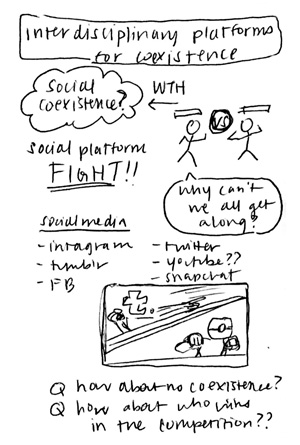 interdisciplinary platforms
for coexistence
Social
coexistence?
WTH
VS
Social platform
FIGHT!!
Why can't
we all get
along?
social media
- intagram
- tumblr
- FB
- twitter
- youtube??
- snapchat
Q how about no coexistence?
Q how about who wins
in the competition??